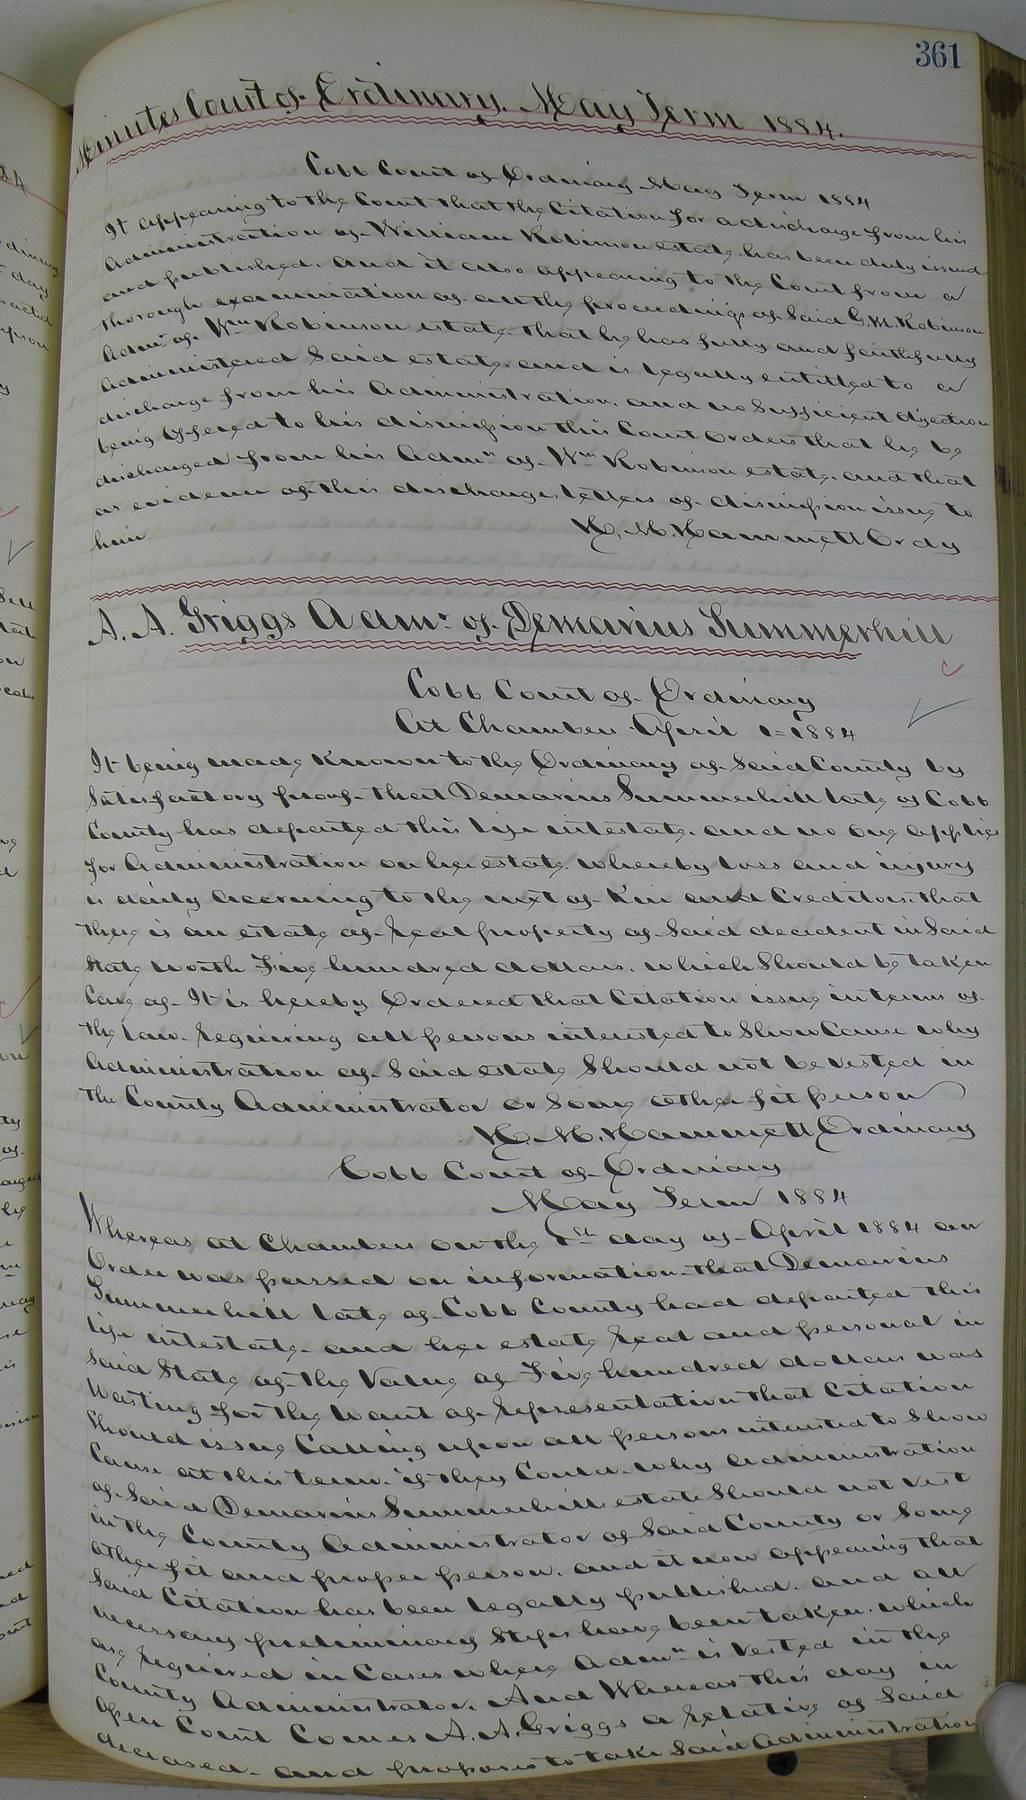 361
Minutes Court of Ordinary. May Term 1884.
Cobb Court of Ordinary May Term 1884
It appearing to the Court that the Citation for a discharge from his
Administration of William Robinson estate has been duly issued
and published. And it also appearing to the Court from a
thorough examination of all the proceedings of Said G. M. Robinson
Admr. of Wm Robinson estate that he has fully and faithfully
administered Said estate and is legally entitled to a
discharge from his Administration. and no Sufficient Objection
being offered to his dismission this Court orders that he be
discharged from his Admn of Wm Robinson estate. and that
as evidence of this discharge letters of dismission issue to
him
H. M. Hammett Ordy
A. A. Griggs Admr. of Demarius Summerhill
Cobb Court of Ordinary
At Chambers April 1=1884
It being made Known to the Ordinary of Said County by
Satisfactory proof that Demarius Summerhill late of Cobb
County has departed this life intestate. and no one applies
for Administration on her estate. whereby loss and injury
is daily accruing to the next of Kin and Creditors. that
there is an estate of real property of Said decedent in Said
State worth Five hundred dollars. which Should be taken
Care of. It is hereby Ordered that Citation issue in terms of
the law. requiring all persons interested to Show Cause why
Administration of Said estate Should not be vested in
the County Administrator or Some other fit person
H. M. Hammett Ordinary
Cobb Court of Ordinary
May Term 1884
Whereas at Chambers on the 1st day of April 1884 an
Order was passed on information that Demarius
Summerhill late of Cobb County had departed this
life intestate and her estate real and personal in
Said State of the Value of Five hundred dollars was
Wasting for the want of representation that Citation
Should issue Calling upon all persons interested to Show
Cause at this term. if they Could. why administration
of Said Demarius Summerhills estate Should not vest
in the County Administrator of Said County or Some
other fit and proper person. and it now appearing that
Said Citation has been legally published. and all
necessary preliminary Steps have been taken. which
are required in Cases where Admn is vested in the
County Administrator. And Whereas this day in
Open Court Comes A. A. Griggs a relative of Said
deceased. and proposes to take Said Administration